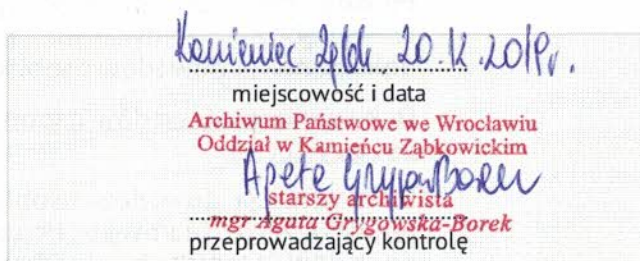 Kamieniec Ząbk. 20.IX.2019r.
miejscowość i data
Archiwum Państwowe we Wrocławiu
Oddział w Kamieńcu Ząbkowickim
Agata Grygowska-Borek
starszy archiwista
mgr Agata Grygowska-Borek
przeprowadzający kontrolę